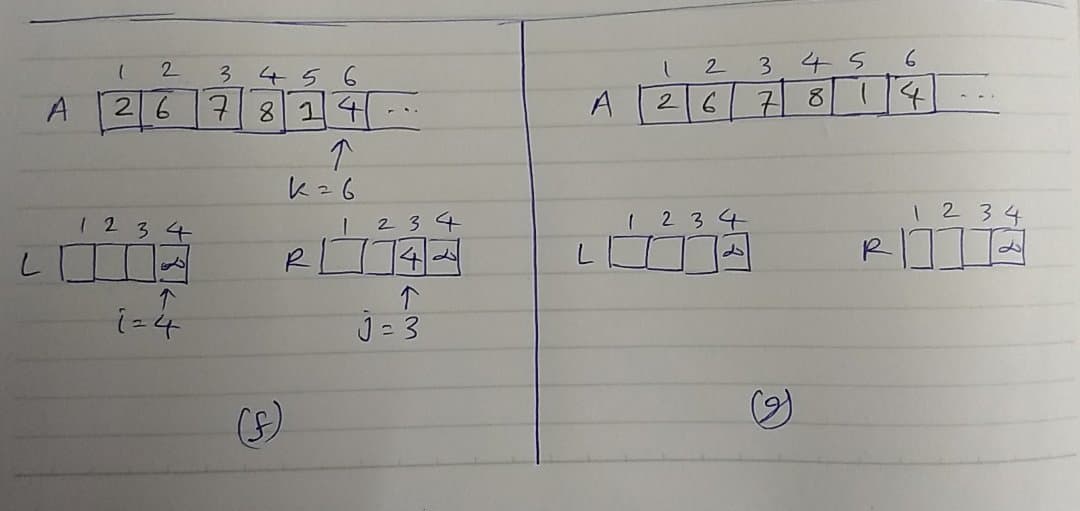 1 2 3 4 5 6
A 2 6 7 8 1 4 ...
↑
k=6
1 2 3 4
L ∞
↑
i=4
1 2 3 4
R 4 ∞
↑
j=3
(f)
1 2 3 4 5 6
A 2 6 7 8 1 4 ...
1 2 3 4
L ∞
1 2 3 4
R ∞
(g)